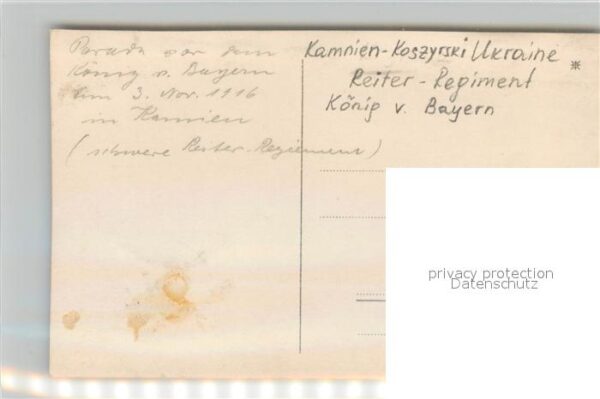 Parade vor dem
König v. Bayern
am 3. Nov. 1916
in Kamien
(schwere Reiter-Regiement)
Kamnien-Koszyrski Ukraine *
Reiter-Regiment
König v. Bayern
privacy protection
Datenschutz